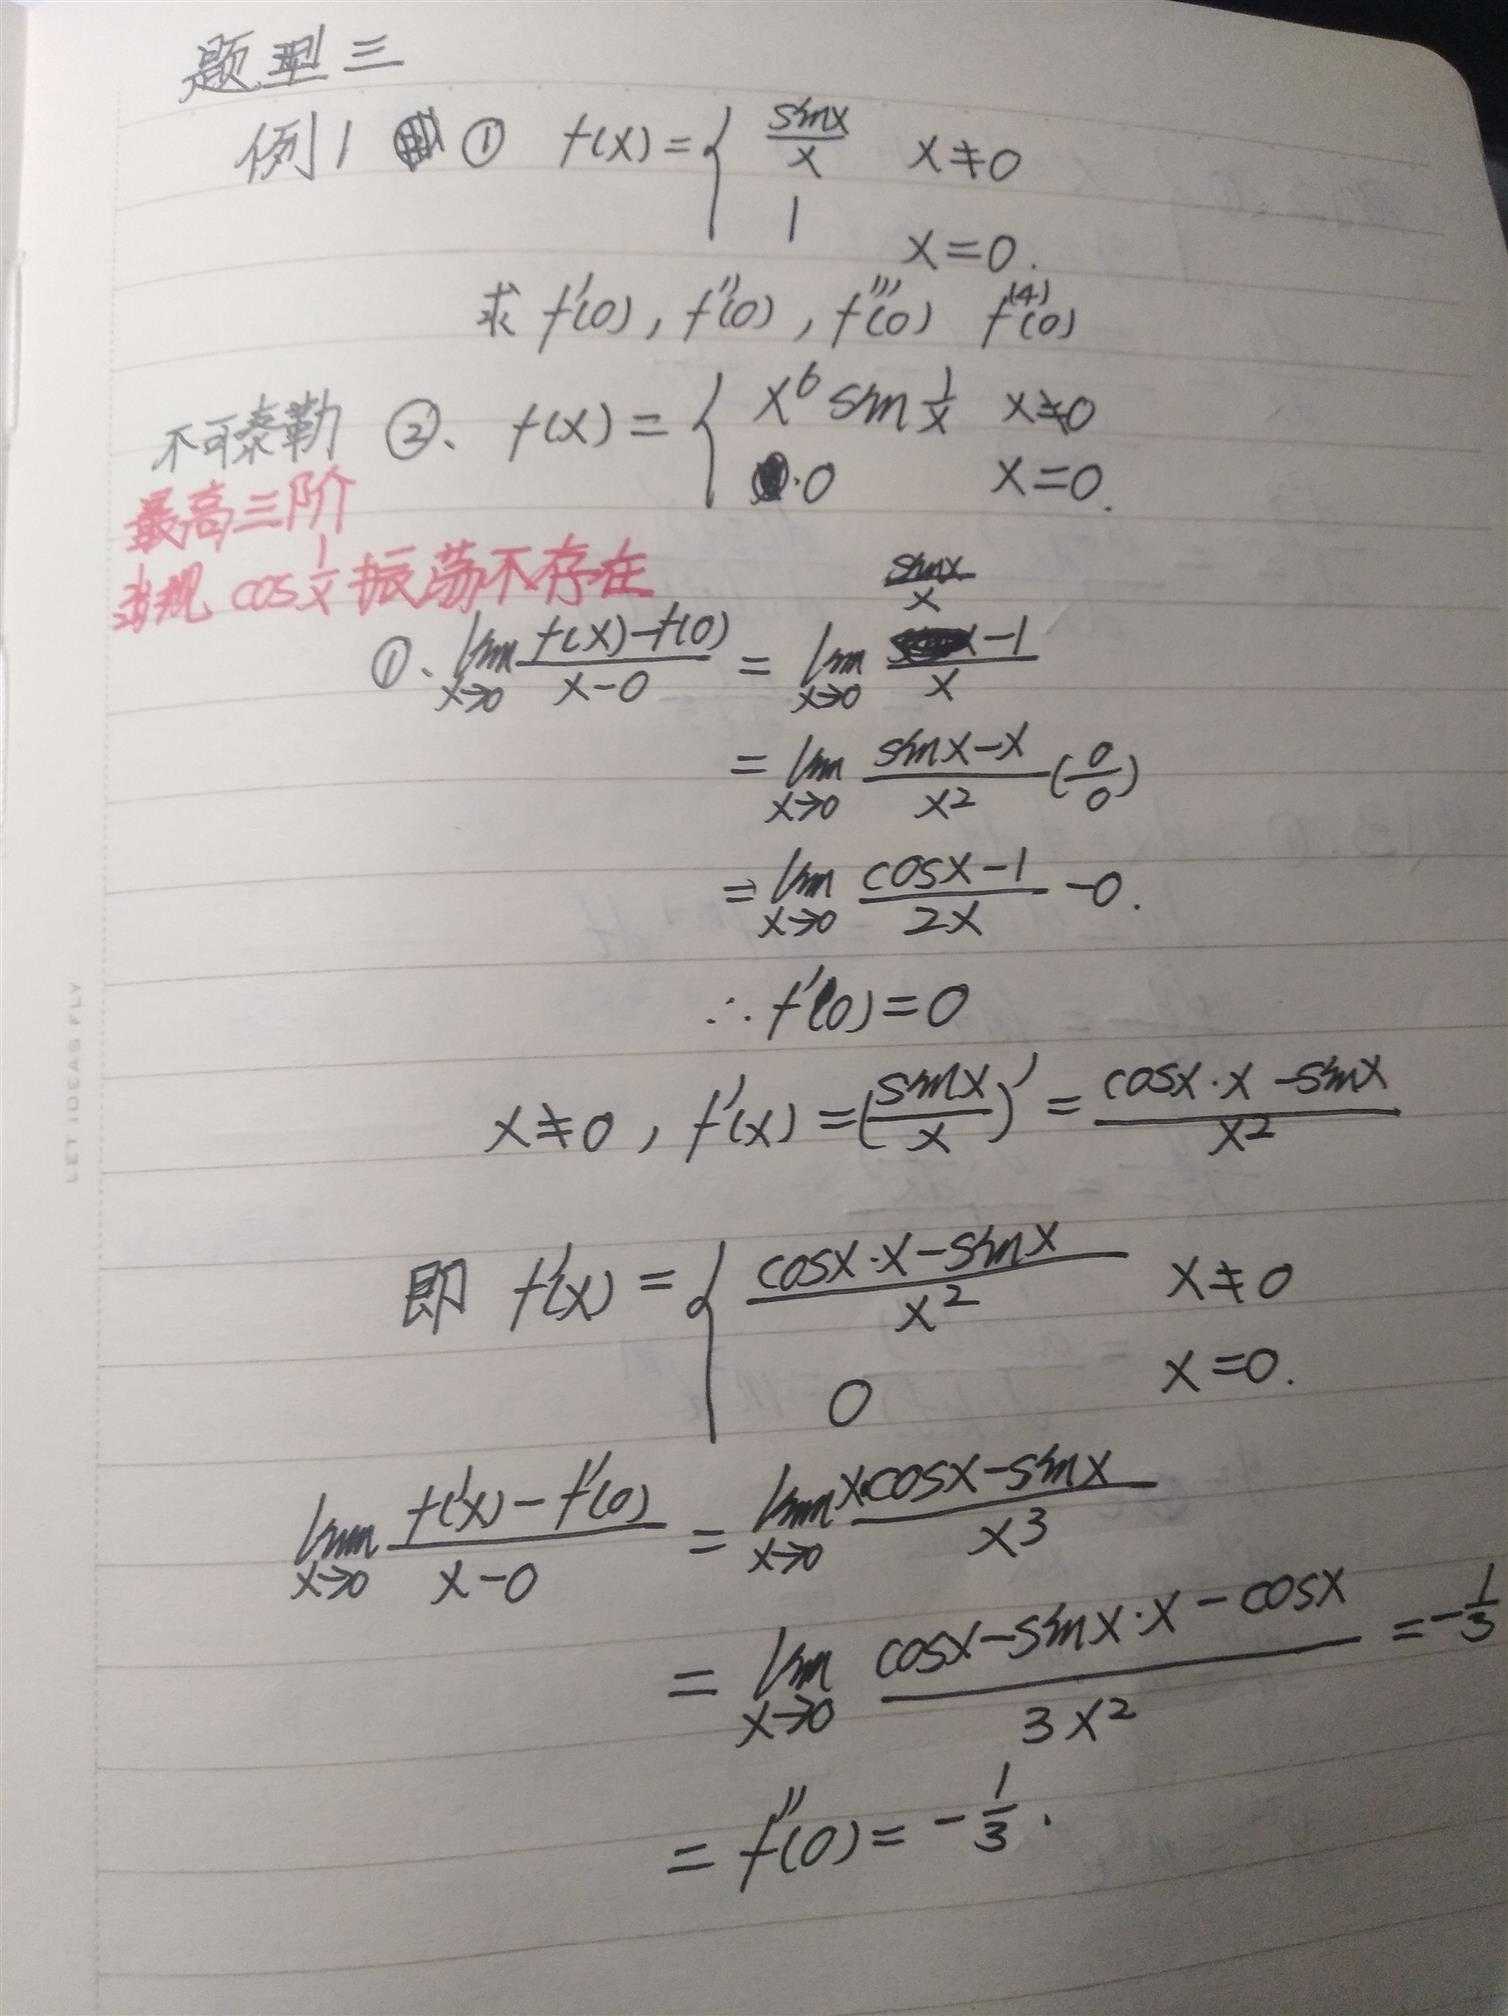 题型三
例1 ① f(x)={ sinx/x x≠0
1 x=0.
求 f'(0), f''(0), f'''(0) f⁽⁴⁾(0)
不可泰勒 ②、 f(x)={ x⁶ sin 1/x x≠0
0 x=0.
最高三阶
出现 cos 1/x 振荡不存在
①、 lim x→0 (f(x)-f(0))/(x-0) = lim x→0 (sinx/x -1)/x
= lim x→0 (sinx-x)/x² (0/0)
= lim x→0 (cosx-1)/2x -0.
∴ f'(0)=0
x≠0, f'(x)=(sinx/x)' = (cosx·x-sinx)/x²
即 f'(x)={ (cosx·x-sinx)/x² x≠0
0 x=0.
lim x→0 (f'(x)-f'(0))/(x-0) = lim x→0 (xcosx-sinx)/x³
= lim x→0 (cosx-sinx·x-cosx)/3x² = -1/3
= f''(0)= -1/3.
LET IDEAS FLY